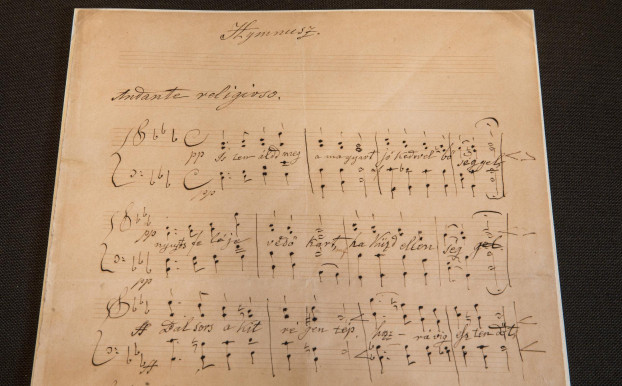 Hymnusz.
Andante religioso.
pp Is ten áldd meg a magyart jó kedvvel bő séggel
pp
pp nyujts fe léje védő kart, ha küzd ellen ség gel
pp
ff Bal sors a kit ré gen tép, hoz - rá víg esz ten dőt
ff